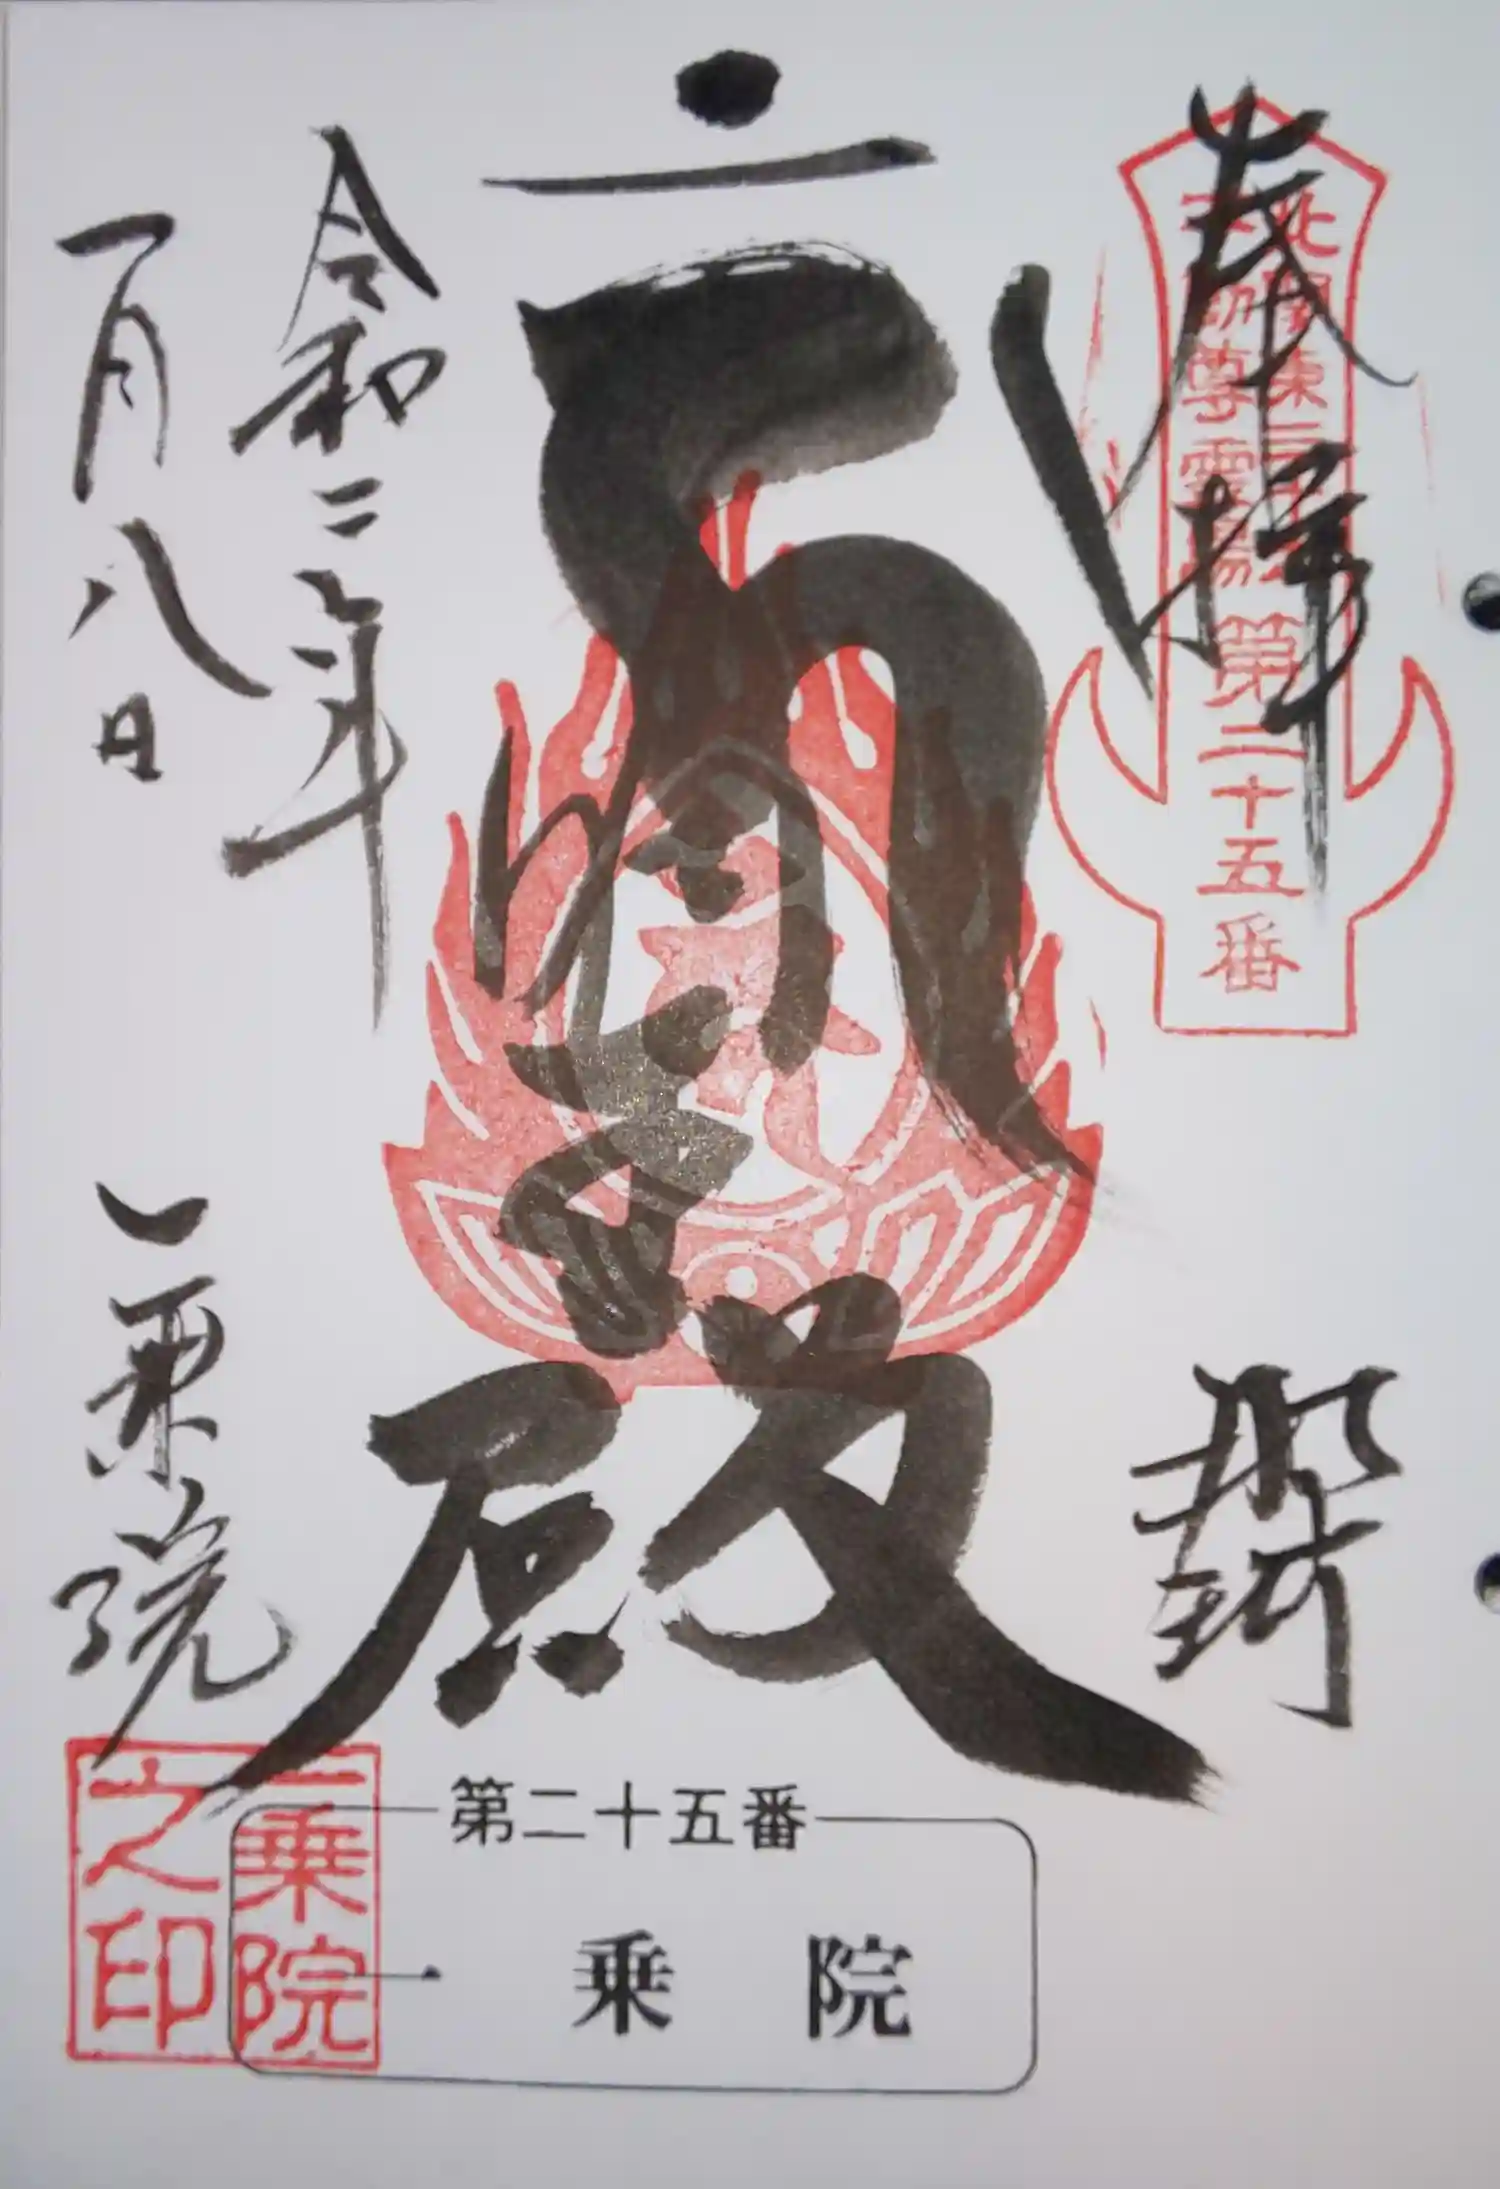 奉拝
北関東三十六
不動尊霊場
第二十五番
那珂
明王殿
令和二年
一月八日
一乗院
一乗院
之印
第二十五番
一乗院